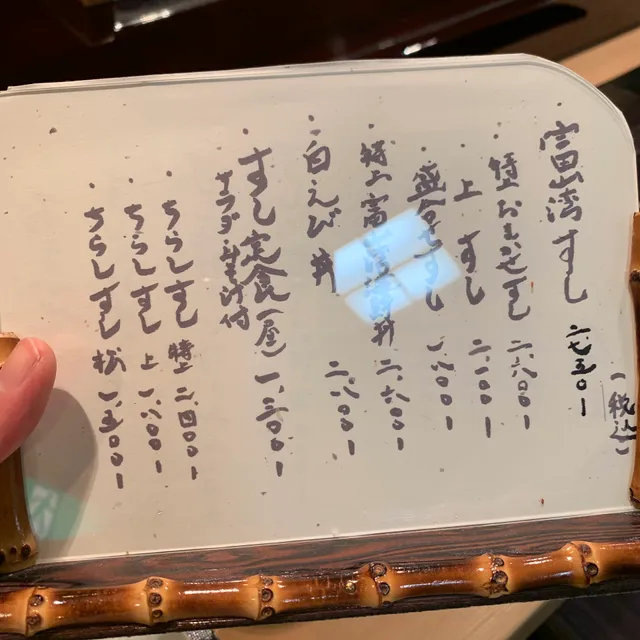 (税込)
・富山湾すし 二、七五〇ー
特上おまかせすし 二、六〇〇ー
・上すし 二、一〇〇ー
・盛合せすし 一、八〇〇ー
・特上富山湾海鮮丼 二、六〇〇ー
・白えび丼 二、八〇〇ー
・すし定食(昼) 一、三〇〇ー
サラダ、みそ汁付
・ちらしすし 特上 二、四〇〇ー
・ちらしすし 上 一、八〇〇ー
・ちらしすし 松 一、五〇〇ー